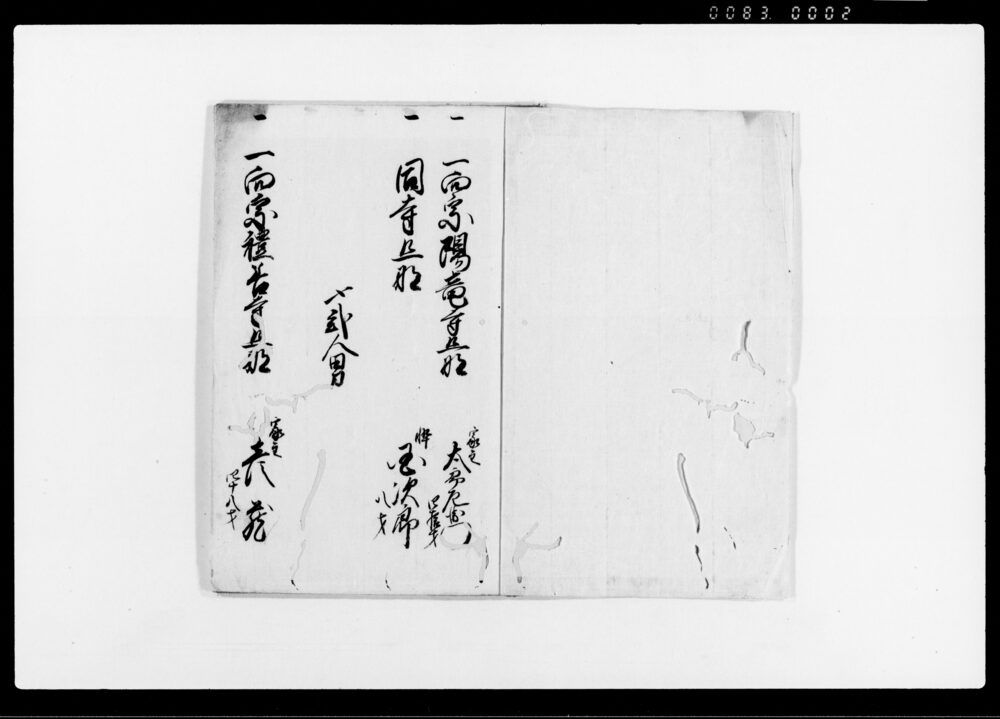 0083. 0002
一
一向宗陽竜寺旦那
家主
太郎左衛門
才
一
同寺旦那
忰
次郎
八才
〆弐人男
一
一向宗禮善寺旦那
家主
彦蔵
四十八才